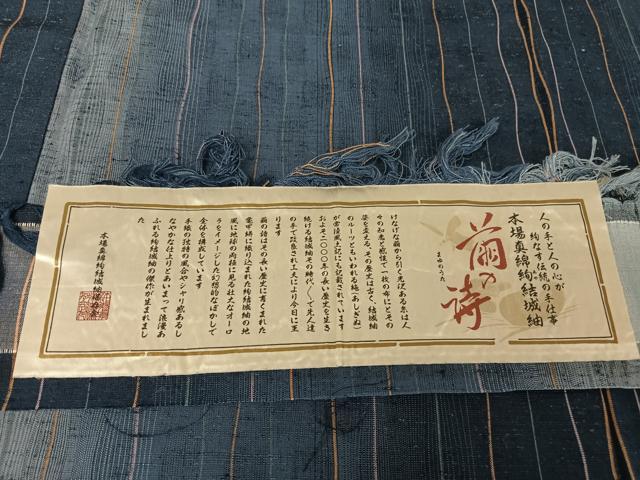 人の手と人の心が
絢なす伝統の手仕事
本場真綿絢結城紬
繭の詩
まゆのうた
けなげな繭から引く光沢ある糸は人
々の知恵と感性で一枚の布にとその
姿を変える。その歴史は古く、結城紬
のルーツともいわれる絁(あしぎぬ)
が常陸風土記にも記載されています
およそ二〇〇〇年の長い歴史を生き
続ける結城紬その時代〱で先人達
の手で改良され工夫により今日に至
ります
繭の詩はその長い歴史に育くまれた
亀甲絣に織り込まれた絢結城紬の地
風に地球の両極に見る壮大なオーロ
ラをイメージした幻想的なぼかしで
全体を構成しています
手織の独特の風合やシャリ感あるし
なやかな仕上りとあいまって浪漫あ
ふれる絢結城紬の傑作が生まれまし
た
本場真綿絢結城紬